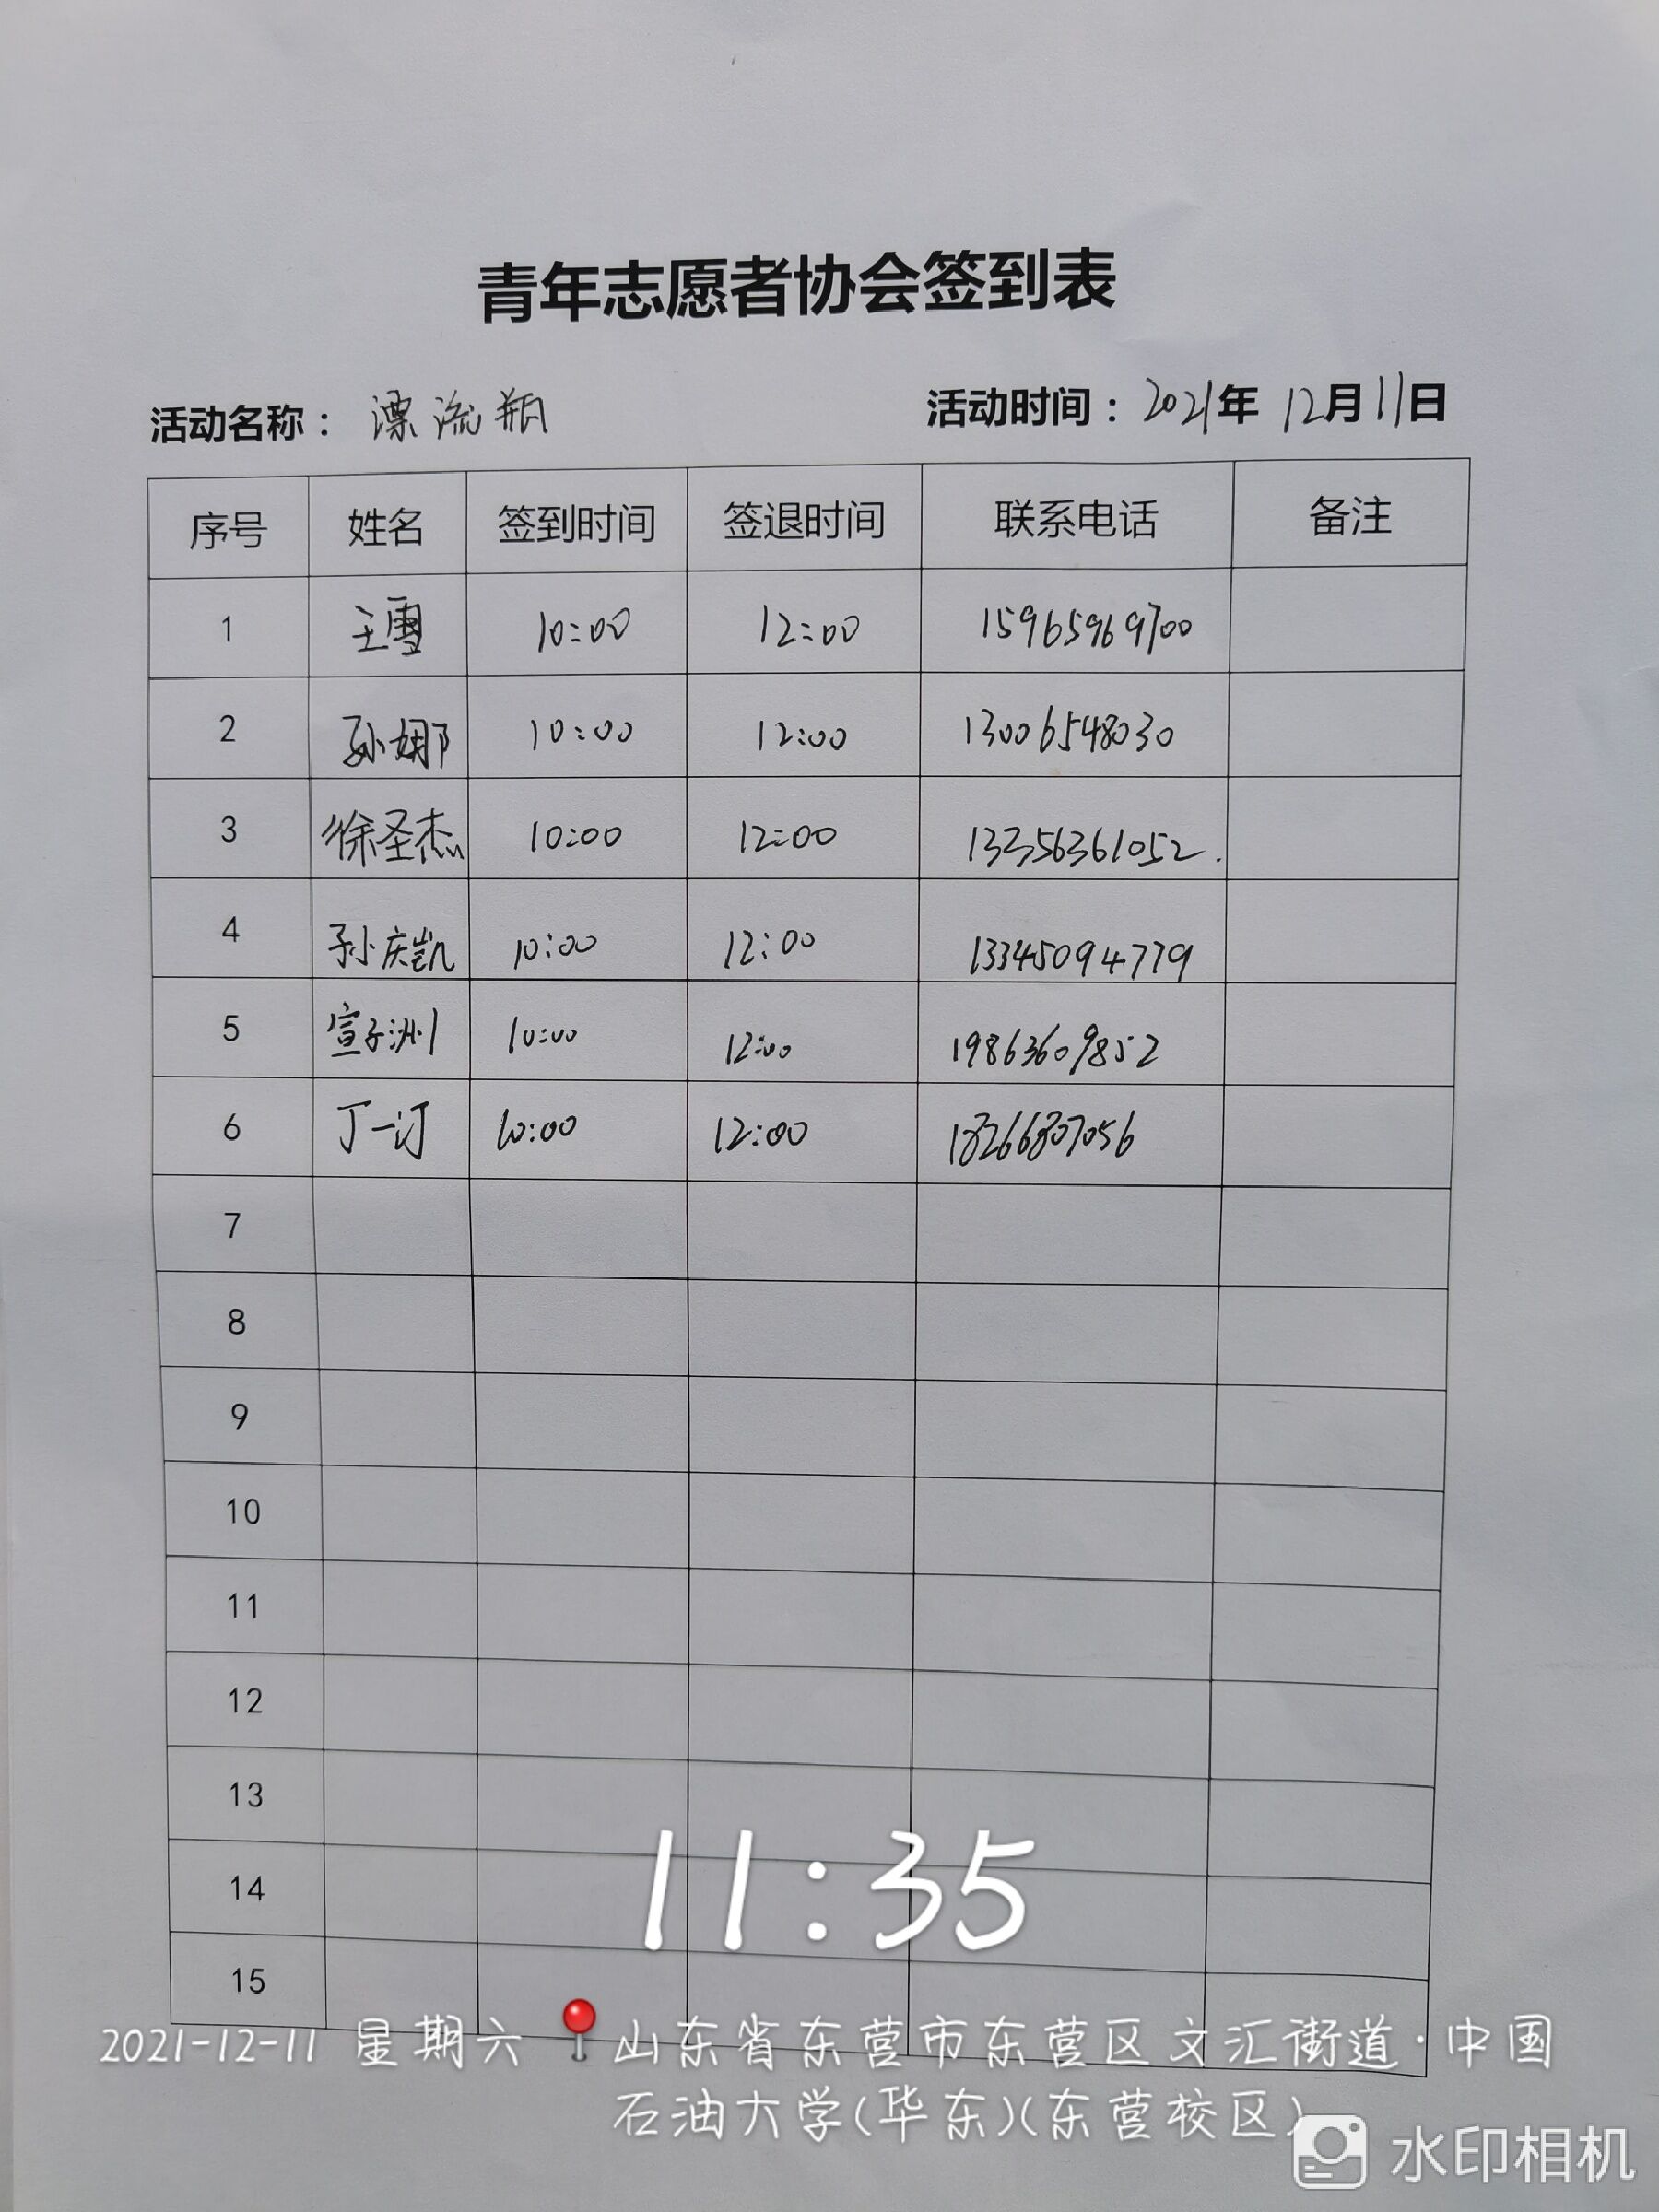 青年志愿者协会签到表
活动名称：漂流瓶 活动时间：2021年12月11日
序号 姓名 签到时间 签退时间 联系电话 备注
1 王雪 10:00 12:00 15965969700
2 孙娜 10:00 12:00 13006548030
3 徐圣杰 10:00 12:00 13356361052.
4 孙庆凯 10:00 12:00 13345094779
5 宣子洲 10:00 12:00 19863609852
6 丁一汀 10:00 12:00 18266807056
7
8
9
10
11
12
13
14
15
11:35
2021-12-11 星期六 山东省东营市东营区文汇街道·中国
石油大学(华东)(东营校区)
水印相机